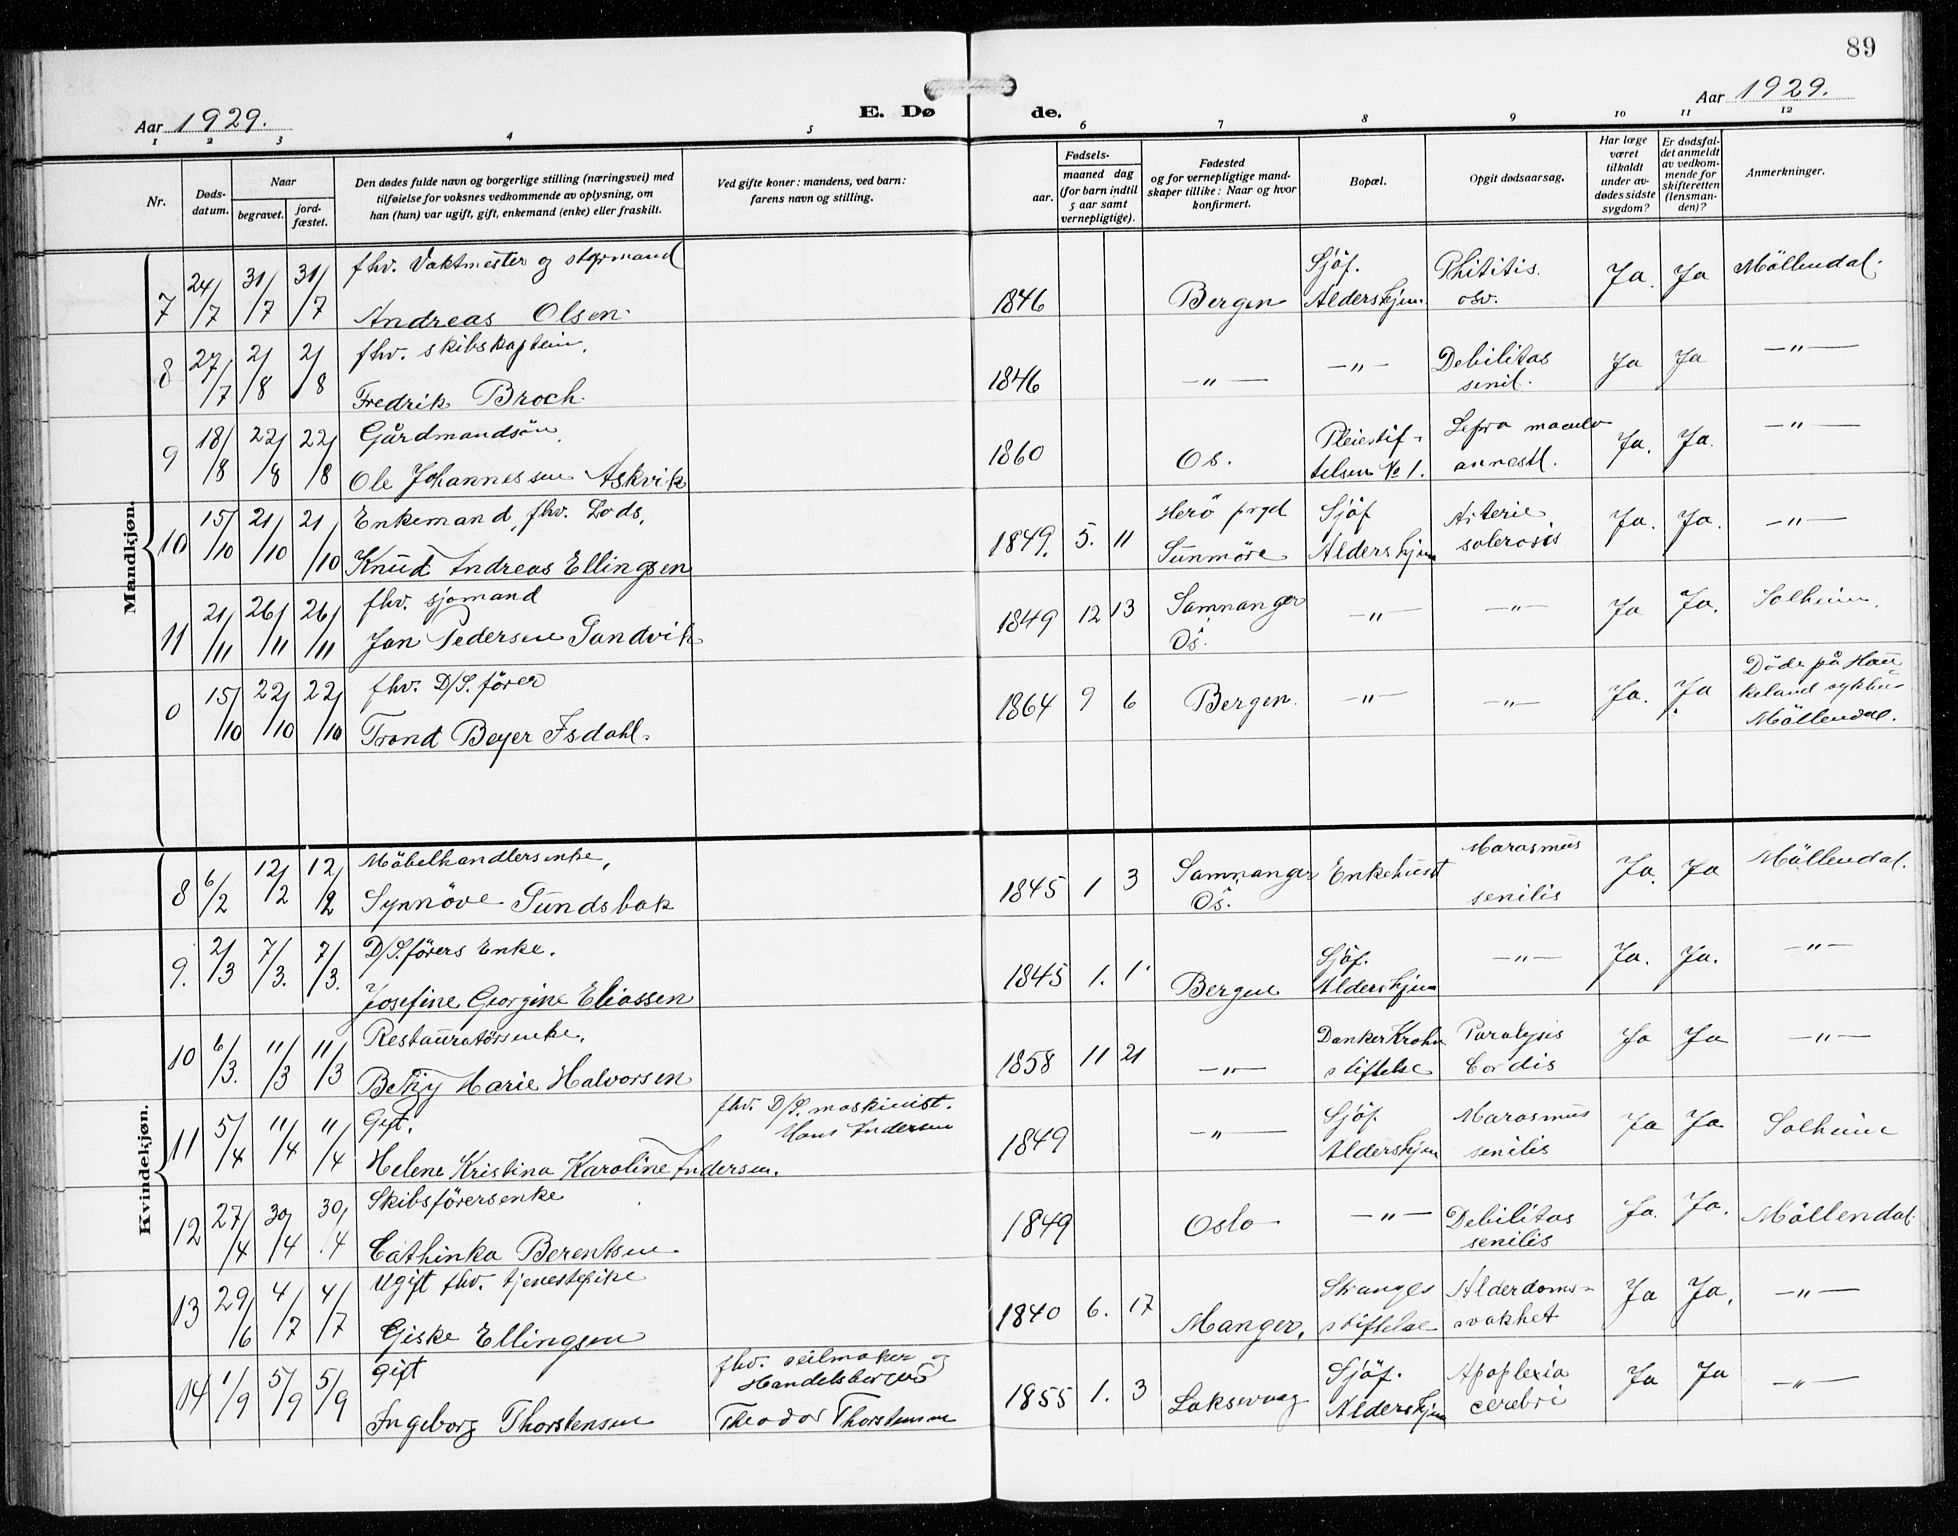 89
Aar 1929.
E. Dø de.
Aar 1929.
1 2 3 4 5 6 7 8 9 10 11 12
Nr.
Døds-
datum.
Naar
begravet.
jord-
fæstet.
Den dødes fulde navn og borgerlige stilling (næringsvei) med
tilføielse for voksnes vedkommende av oplysning, om
han (hun) var ugift, gift, enkemand (enke) eller fraskilt.
Ved gifte koner: mandens, ved barn:
farens navn og stilling.
Fødsels-
aar.
maaned dag
(for barn indtil
5 aar samt
vernepligtige).
Fødested
og for vernepligtige mand-
skaper tillike: Naar og hvor
konfirmert.
Bopæl.
Opgit dødsaarsag.
Har læge
været
tilkaldt
under av-
dødes sidste
sygdom?
Er dødsfal-
det anmeldt
av vedkom-
mende for
skifteretten
(lensman-
den)?
Anmerkninger.
Mandkjøn.
7 24/7 31/7 31/7 fhv. Vaktmester og styrmand
Andreas Olsen. 1846 Bergen Sjöf. Aldershjem. Phititis. osv. Ja. Ja Möllendal.
8 27/7 2/8 2/8 fhv. skibskaptein.
Fredrik Broch. 1846 —"— —"— Debilitas senil. Ja Ja —"—
9 18/8 22/8 22/8 Gårdmandsön.
Ole Johannessen Askvik 1860 Os. Pleiestif- telsen № 1. Lepra maculo annestl. Ja. Ja. —"—
10 15/10 21/10 21/10 Enkemand, fhv. Lods,
Knud Andreas Ellingsen 1849. 5. 11 Herö prgd Sunmöre Sjöf Aldershjem Arterie sclerosis Ja. Ja. —"—
11 21/11 26/11 26/11 fhv. sjømand
Jan Pedersen Sandvik 1849 12 13 Samnanger Os. —"— —"— Ja Ja. Solheim.
0 15/10 22/10 22/10 fhv. D/S. förer
Trond Beyer Isdahl. 1864 9 6 Bergen. —"— —"— Ja. Ja. Döde på Hau keland sykhus Möllendal.
Kvindekjøn.
8 6/2 12/2 12/2 Möbelhandlersenke,
Synnöve Tundsbak 1845 1 3 Samnanger Os. Enkehuset Marasmus senilis Ja. Ja Möllendal.
9. 2/3 7/3. 7/3. D/S. förers Enke.
Josefine Georgine Eliassen 1845 1. 1. Bergen Sjöf. Aldershjem —"— Ja. Ja. —"—
10 6/3. 11/3 11/3 Restauratörsenke.
Betzy Marie Halvorsen 1858 11 21 —"— Danker Krohn stiftelse Paralysis Cordis Ja Ja —"—
11 5/4 11/4 11/4 Gift. fhv. D/S. maskinist.
Hans Andersen
Helene Kristina Karoline Andersen. 1849 —"— Sjöf. Aldershjem Marasmus senilis Ja Ja Solheim
12 27/4 30/4 30/4 Skibsförersenke
Cathinka Berentsen. 1849 Oslo —"— Debilitas senilis Ja. Ja. Möllendal.
13 29/6 4/7 4/7 Ugift fhv. tjenestepike
Giske Ellingsen 1840 6. 17 Manger. Stranges stiftelse Alderdoms- svakhet Ja Ja. —"—
14 1/9 5/9 5/9 Gift fhv. seilmaker og
Handelsborger
Ingeborg Thorstensen Theodor Thorstensen 1855 1. 3 Laksevaag Sjöf. Aldershjem Apoplexia cerebri Ja Ja —"—